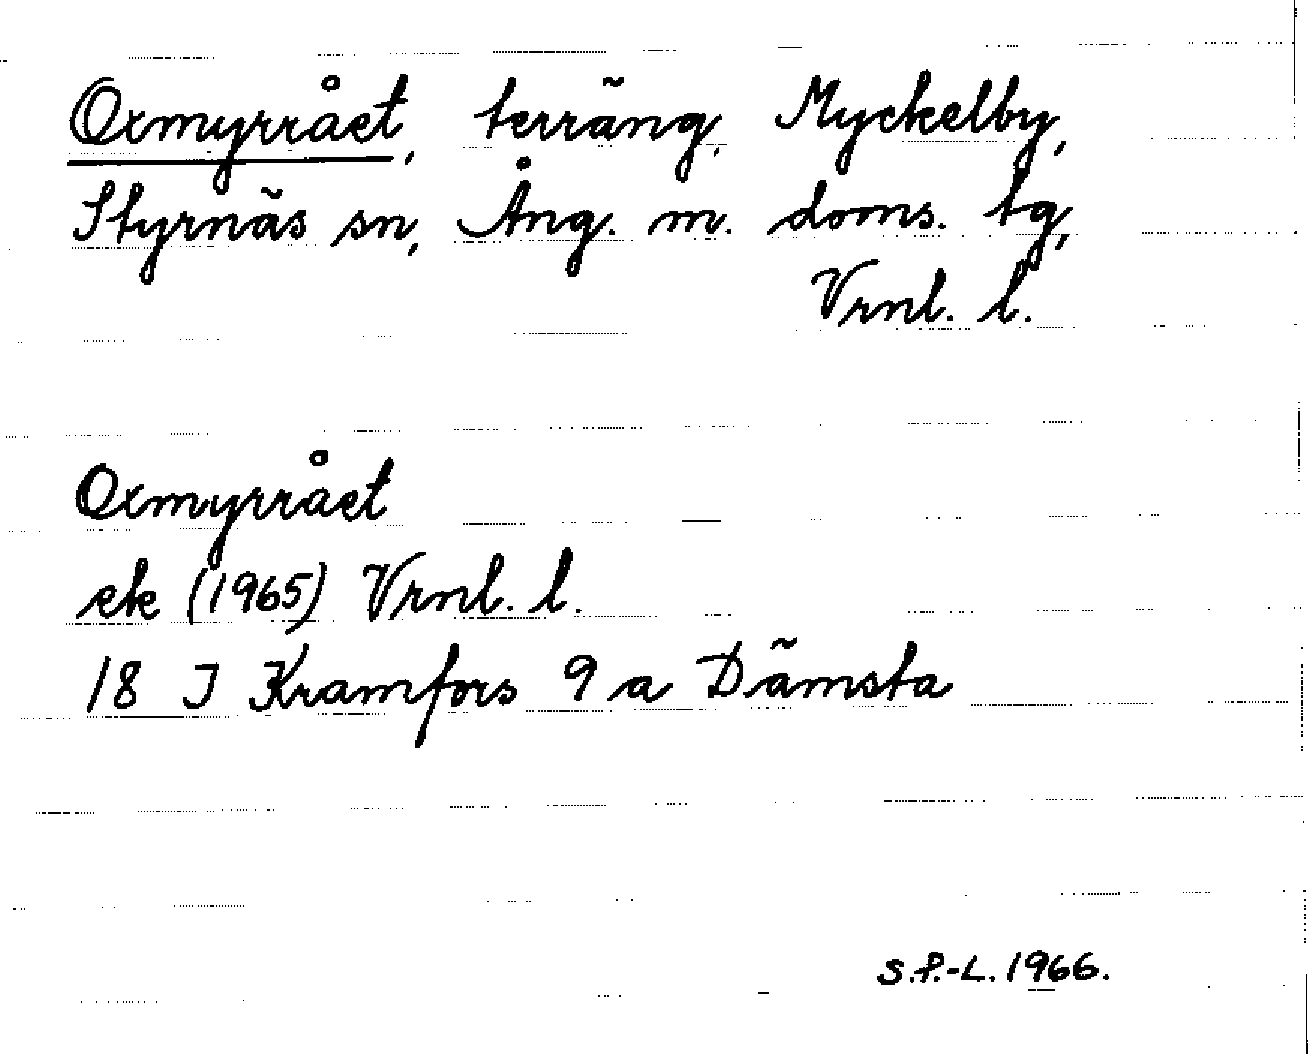 Oxmyrrået, terräng, Myckelby,
Styrnäs sn, Ång. m. doms. tg,
Vrnl. l.
Oxmyrrået
ek (1965) Vrnl. l.
18 I Kramfors 9 a Dämsta
S.P.-L. 1966.